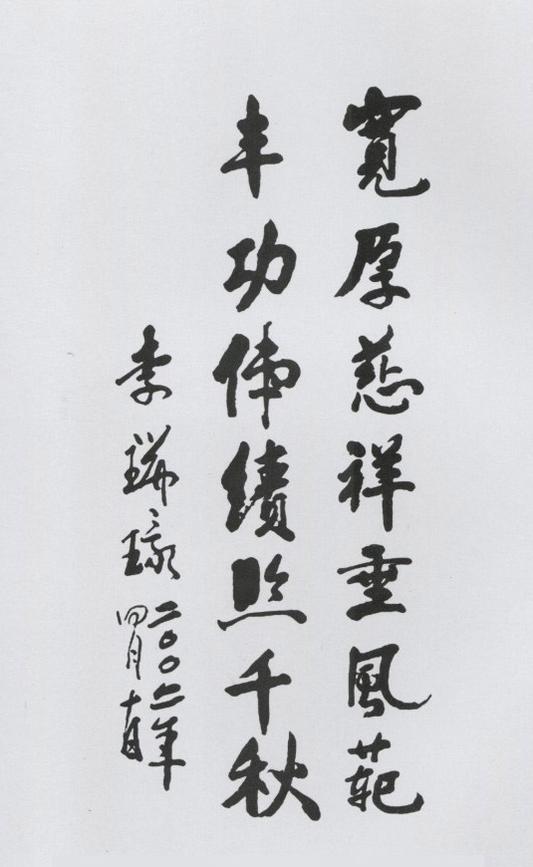 寬厚慈祥垂風範
丰功伟績照千秋
李瑞環
二〇〇二年
四月